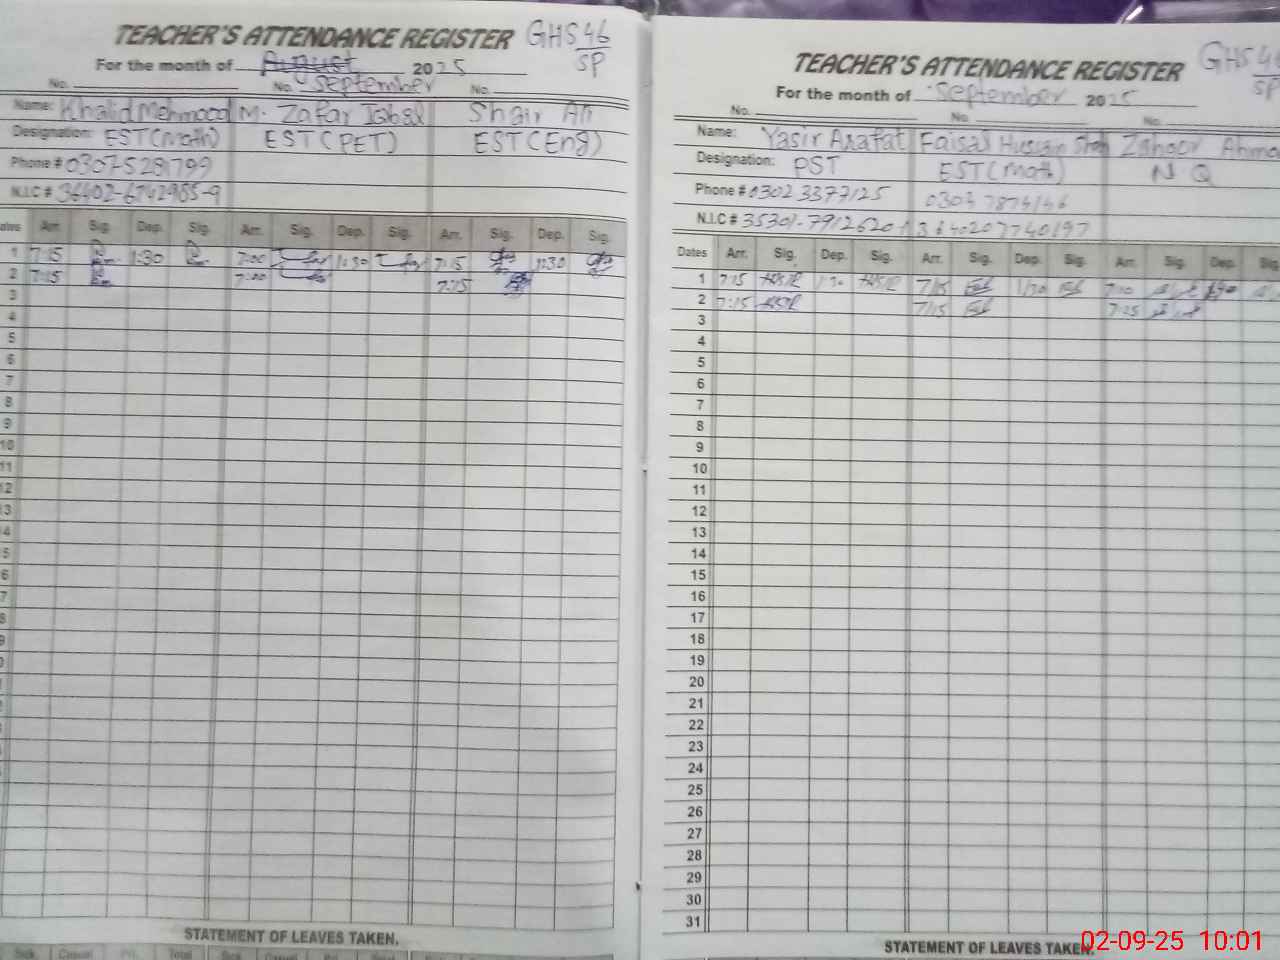 TEACHER'S ATTENDANCE REGISTER GHS 46/SP
For the month of August 2025
No. No. September No.
Name: Khalid Mehmood M. Zafar Iqbal Shair Ali
Designation: EST (Math) EST (PET) EST (Eng)
Phone # 03075281799
N.I.C # 36402-6742985-9
Dates Arr. Sig. Dep. Sig. Arr. Sig. Dep. Sig. Arr. Sig. Dep. Sig.
1 7:15 1:30 7:00 1:30 7:15 1:30
2 7:15 7:00 7:15
3
4
5
6
7
8
9
10
11
12
13
STATEMENT OF LEAVES TAKEN.
Sick. Casual Total Sick. Casual
TEACHER'S ATTENDANCE REGISTER GHS 46/SP
For the month of September 2025
No. No. No.
Name: Yasir Arafat Faisal Hussain Shah Zahoor Ahmad
Designation: PST EST (Math) N Q
Phone # 03023377125
N.I.C # 3640207740197
Dates Arr. Sig. Dep. Sig. Arr. Sig. Dep. Sig. Arr. Sig. Dep. Sig.
1 7:15 1:30 7/15 1/30 7:10
2 7:15 7/15 7:15
3
4
5
6
7
8
9
10
11
12
13
14
15
16
17
18
19
20
21
22
23
24
25
26
27
28
29
30
31
STATEMENT OF LEAVES TAKEN.
02-09-25 10:01